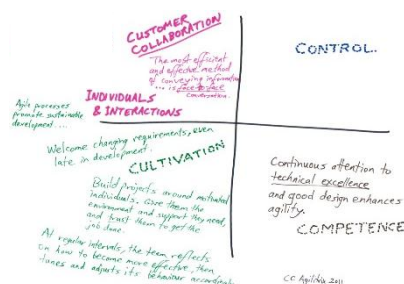 CUSTOMER
COLLABORATION
The most efficient
and effective method
of conveying information
... is face-to-face
conversation.
INDIVIDUALS
& INTERACTIONS
CONTROL.
Agile processes
promote sustainable
development ....
Welcome changing requirements, even
late in development.
CULTIVATION
Build projects around motivated
individuals. Give them the
environment and support they need,
and trust them to get the
job done.
At regular intervals, the team reflects
on how to become more effective, then
tunes and adjusts its behaviour
Continuous attention to
technical excellence
and good design enhances
agility.
COMPETENCE
CC Agilitrix 2011